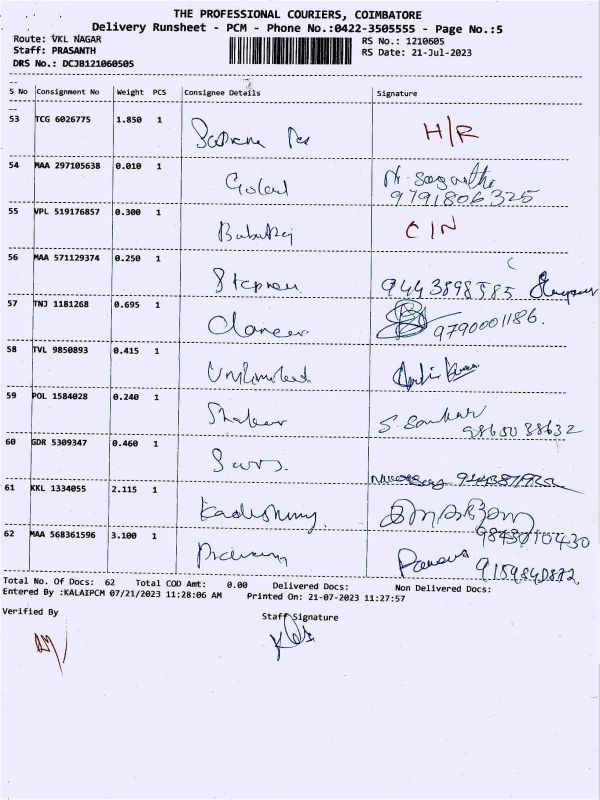 THE PROFESSIONAL COURIERS, COIMBATORE
Delivery Runsheet - PCM - Phone No.:0422-3505555 - Page No.:5
Route: VKL NAGAR RS No.: 1210605
Staff: PRASANTH RS Date: 21-Jul-2023
DRS No.: DCJB121060505
S No Consignment No Weight PCS Consignee Details Signature
53 TCG 6026775 1.850 1 H/R
54 MAA 297105638 0.010 1
9791806325
55 VPL 519176857 0.300 1 C/N
56 MAA 571129374 0.250 1 Stephen 9443898585
57 TNJ 1181268 0.695 1 9790001186.
58 TVL 9850893 0.415 1 Unlimited
59 POL 1584028 0.240 1 S. Sankar
9865038632
60 GDR 5309347 0.460 1
61 KKL 1334055 2.115 1
62 MAA 568361596 3.100 1
Total No. Of Docs: 62 Total COD Amt: 0.00 Delivered Docs: Non Delivered Docs:
Entered By :KALAIPCM 07/21/2023 11:28:06 AM Printed On: 21-07-2023 11:27:57
Verified By Staff Signature